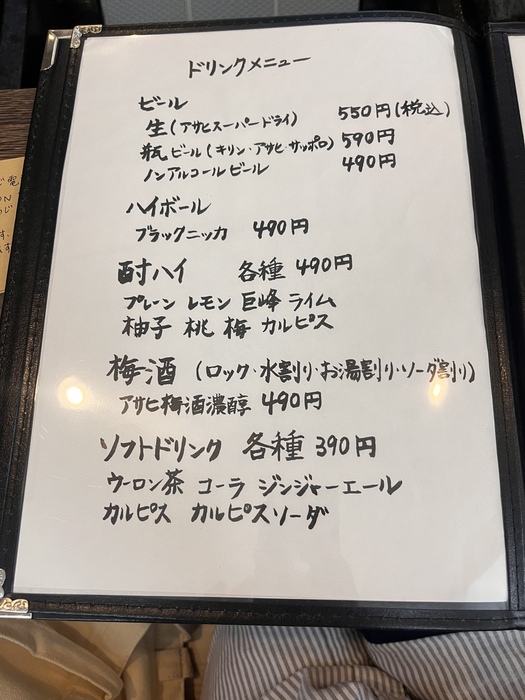 ドリンクメニュー
ビール
生(アサヒスーパードライ) 550円(税込)
瓶ビール(キリン・アサヒ・サッポロ) 590円
ノンアルコールビール 490円
ハイボール
ブラックニッカ 490円
酎ハイ 各種 490円
プレーン レモン 巨峰 ライム
柚子 桃 梅 カルピス
梅酒 (ロック・水割り・お湯割り・ソーダ割り)
アサヒ梅酒濃醇 490円
ソフトドリンク 各種 390円
ウーロン茶 コーラ ジンジャーエール
カルピス カルピスソーダ